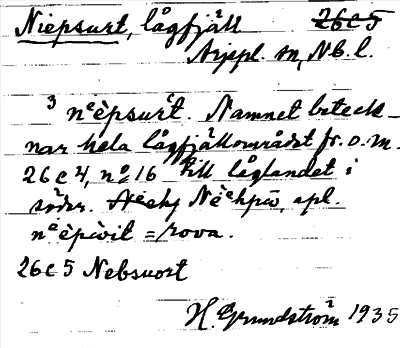 Niepsurt, lågfjäll 26c5
Arjepl. sn, Nb. l.
3 nᵉèpsurt. Namnet beteck-
nar hela lågfjällområdet fr. o. m.
26c4, nº 16 till låglandet i
söder.
nᵉèpìvit = rova.
26c5 Nebsuort
H. Grundström 1935